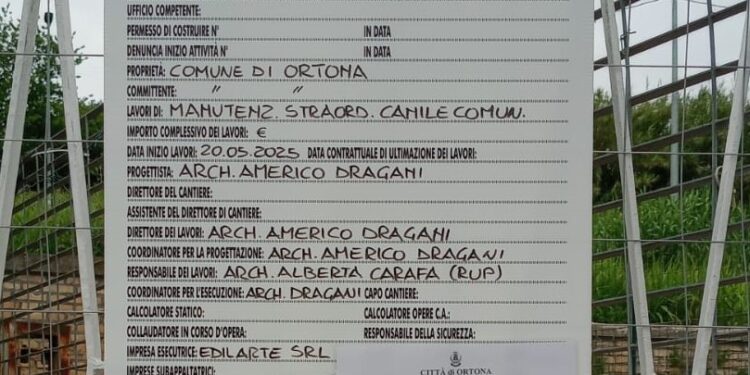 UFFICIO COMPETENTE:
PERMESSO DI COSTRUIRE N° IN DATA
DENUNCIA INIZIO ATTIVITÀ N° IN DATA
PROPRIETA: COMUNE DI ORTONA
COMMITTENTE: " "
LAVORI DI: MANUTENZ. STRAORD. CANILE COMUN.
IMPORTO COMPLESSIVO DEI LAVORI: €
DATA INIZIO LAVORI: 20.05.2025 DATA CONTRATTUALE DI ULTIMAZIONE DEI LAVORI:
PROGETTISTA: ARCH. AMERICO DRAGANI
DIRETTORE DEL CANTIERE:
ASSISTENTE DEL DIRETTORE DI CANTIERE:
DIRETTORE DEI LAVORI: ARCH. AMERICO DRAGANI
COORDINATORE PER LA PROGETTAZIONE: ARCH. AMERICO DRAGANI
RESPONSABILE DEI LAVORI: ARCH. ALBERTA CARAFA (RUP)
COORDINATORE PER L'ESECUZIONE: ARCH. DRAGANI CAPO CANTIERE:
CALCOLATORE STATICO: CALCOLATORE OPERE C.A.:
COLLAUDATORE IN CORSO D'OPERA: RESPONSABILE DELLA SICUREZZA:
IMPRESA ESECUTRICE: EDILARTE SRL
IMPRESE SUBAPPALTATRICI:
CITTÀ di ORTONA